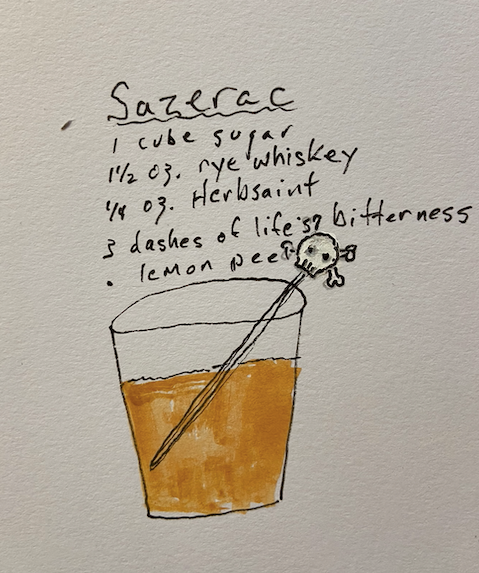 Sazerac
1 cube sugar
1 1/2 oz. rye whiskey
1/4 oz. Herbsaint
3 dashes of life's bitterness
. lemon peel